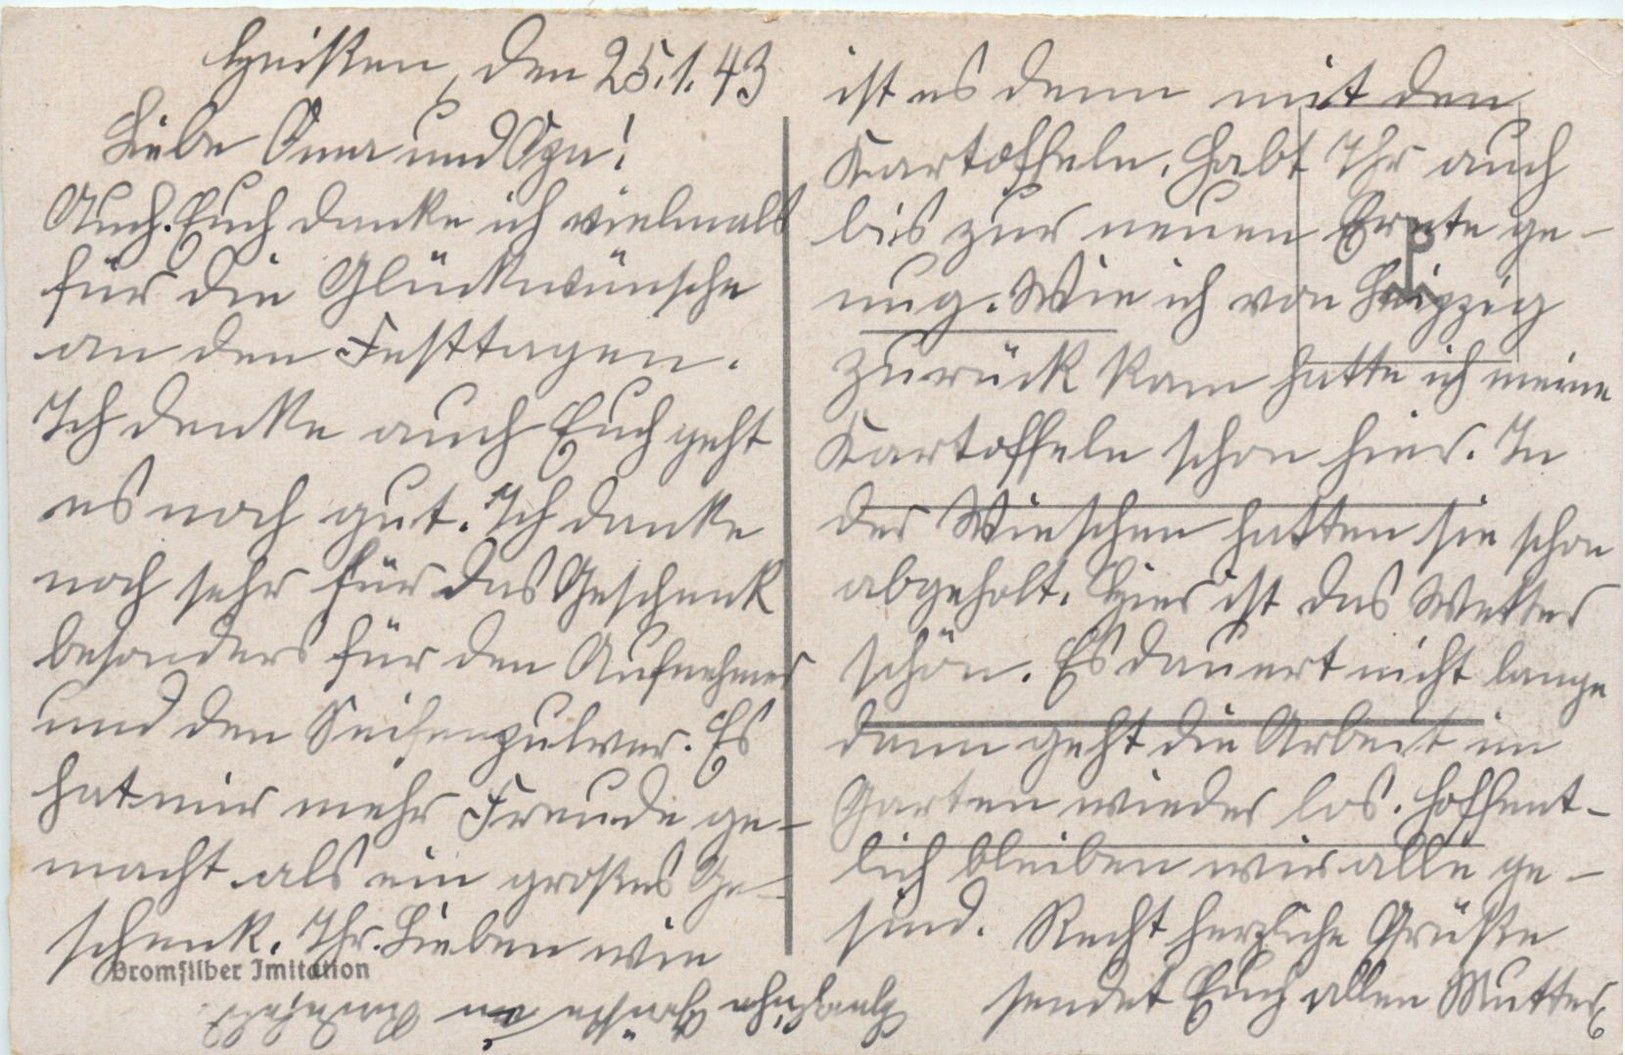 Heißen, den 25.1.43
Liebe Oma und Opa!
Auch Euch danke ich vielmals
für die Glückwünsche
an den Festtagen.
Ich denke auch Euch geht
es noch gut. Ich danke
noch sehr für das Geschenk
besonders für den Aufnehmer
und den Seifenpulver. Es
hat mir mehr Freude ge-
macht als ein großes Ge-
schenk. Ihr Lieben wie
Bromsilber Imitation
ist es denn mit den
Kartoffeln, habt Ihr auch
bis zur neuen Ernte ge-
nug. Wie ich von Leipzig
zurück kam hatte ich meine
Kartoffeln schon hier. In
der hatten sie schon
abgeholt. Hier ist das Wetter
schön. Es dauert nicht lange
dann geht die Arbeit im
Garten wieder los. Hoffent-
lich bleiben wir alle ge-
sund. Recht herzliche Grüße
sendet Euch allen Mutter
Herzliche Grüße an